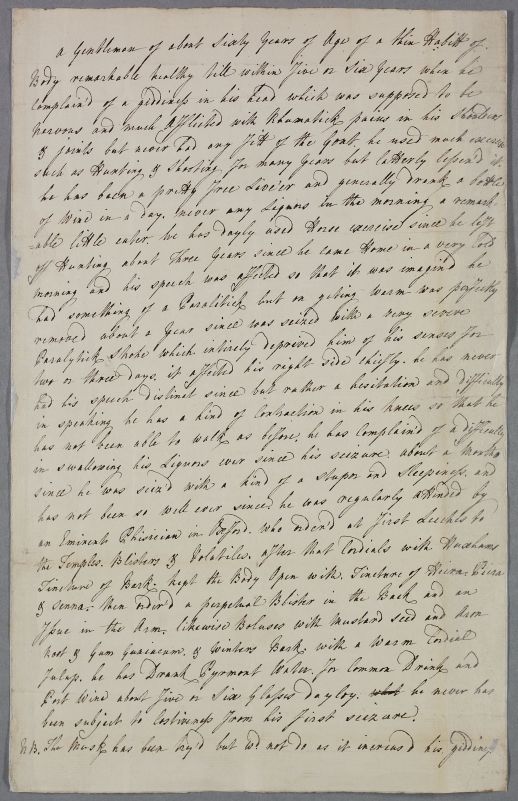 a Gentleman of about Sixty Years of Age of a thin Habitt of
Body remarkable healthy till within Five or Six Years when he
Complain'd of a giddiness in his head which was supposed to be
Nervous and much Afflicted with Rhumatick pains in his Shoulders
& joints but never had any Fitt of the Gout, he used much exercise
such as Hunting & Shooting for many Years but latterly lessen'd it.
he has been a pretty free Liveer and generally drank a bottle
of Wine in a day, never any Liquors in the morning a remark-
able little eater, he has dayly used Horse exercise since he left
off Hunting about Three Years since he came Home in a very Cold
morning and his speech was affected so that it was imagin'd he
had something of a Paralitick but on geting warm was perfectly
removed about a Year since was seized with a very severe
Paralytick Stroke which intirely deprived him of his senses for
two or three days. it affected his right side chiefly. he has never
had his speech distinct since but rather a hesitation and difficulty
in speaking he has a kind of Contraction in his knees so that he
has not been able to walk as before, he has Complain'd of a difficulty
in swalowing his Liquors ever since his seizure. about a Month
since he was seiz'd with a kind of a stupor and Sleepiness, and
has not been so well ever since, he was regularly attended by
an Eminent Phisician in Oxford. who order'd at first Leeches to
the Temples. Blisters & Volatiles, after that Cordials with Huxhams
Tincture of Bark, kept the Body Open with Tincture of Heira-Picra
& Senna, then order'd a perpetual Blister in the Back and an
Issue in the Arm. likewise Boluses with Mustard seed and Aron
Root & Gum Guaiacum, & Winters Bark, with a Warm Cordial
Julap. he has Drank Pyrmont Water, for Common Drink and
Port Wine about Five or Six Glasses dayloy. he never has
been subject to Costiveness from his first seizure.
N.B. The Musk has been try'd but wd not do as it increas'd his giddiness